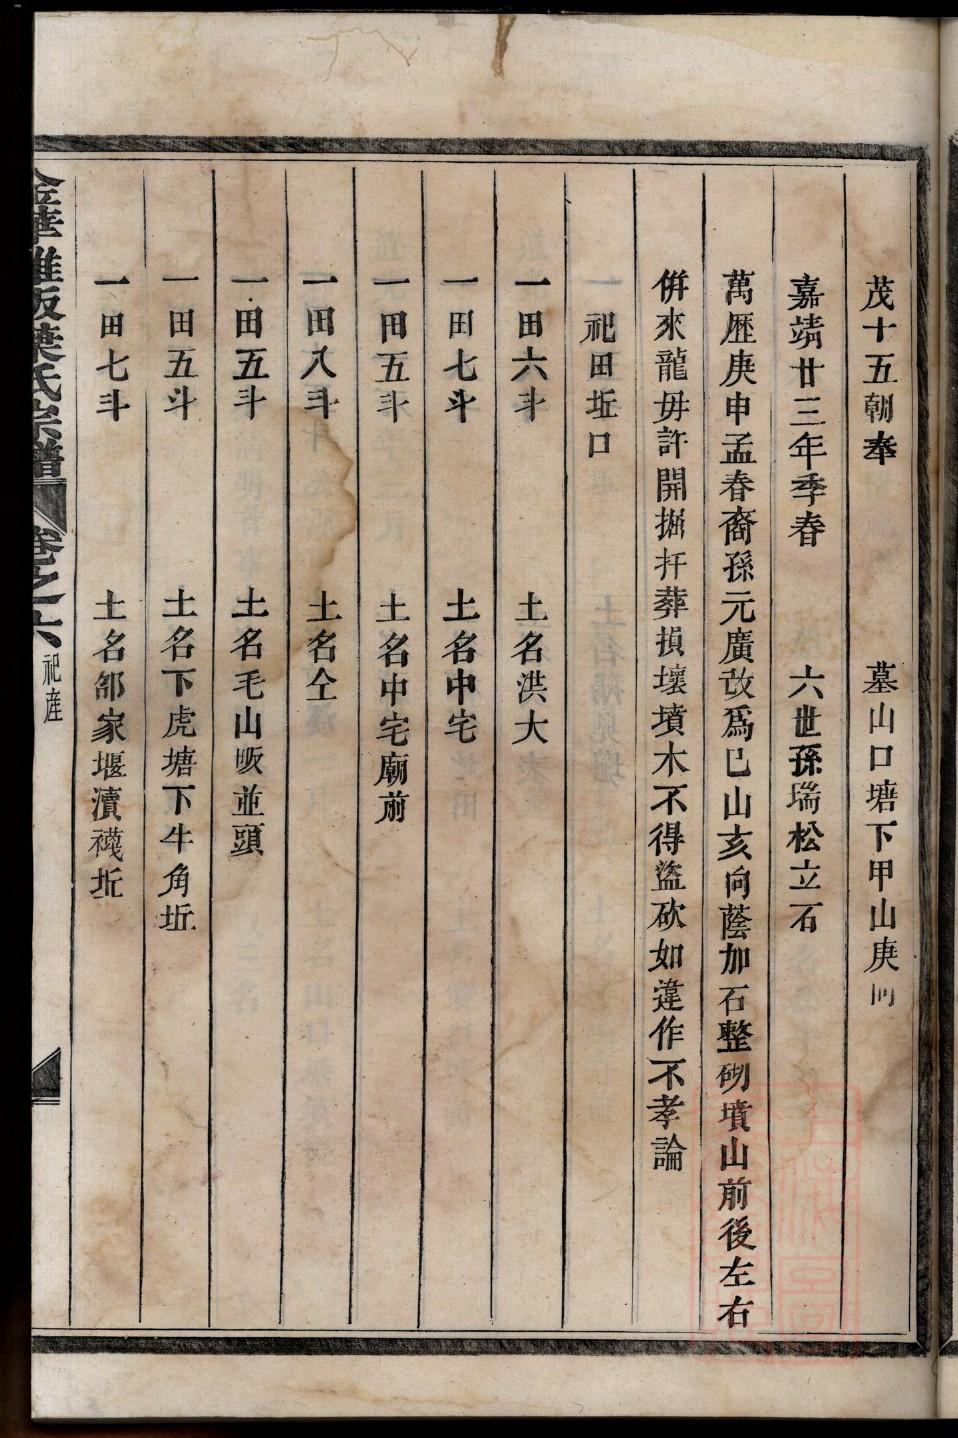 茂十五朝奉　墓山口塘下甲山庚向
嘉靖廿三年季春　六世孫瑞松立石
萬歷庚申孟春裔孫元廣改爲巳山亥向蔭加石整砌墳山前後左右
倂來龍毋許開掘扦葬損壞墳木不得盜砍如違作不孝論
一祀田坵口
一田六斗　土名洪大
一田七斗　土名中宅
一田五斗　土名中宅廟前
一田八斗　土名仝
一田五斗　土名毛山畈並頭
一田五斗　土名下虎塘下牛角坵
一田七斗　土名郃家堰瀆襪坵
金華雅畈葉氏宗譜　卷之六　祀產